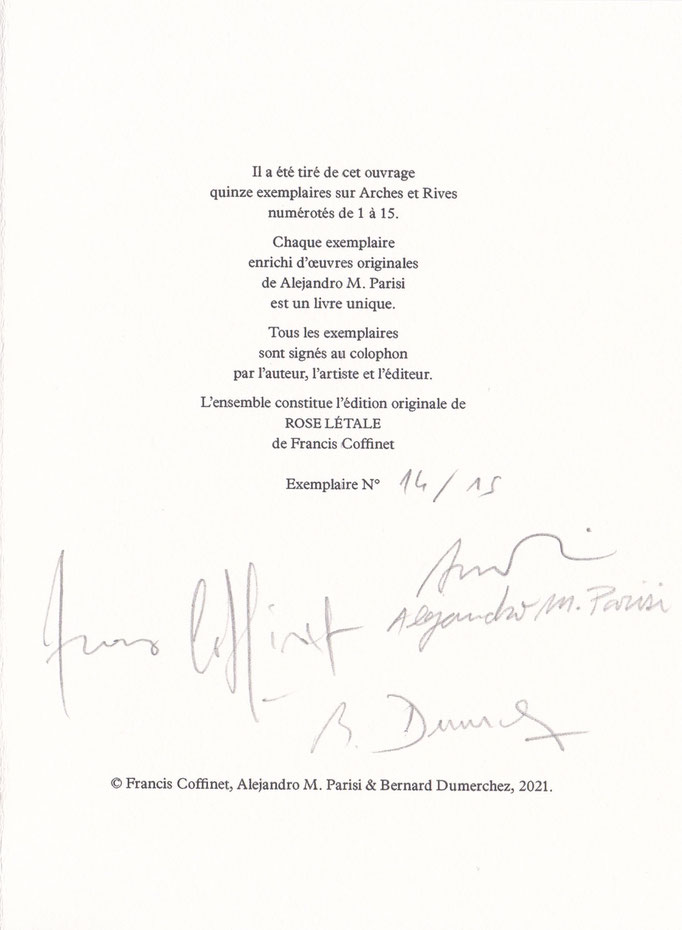 Il a été tiré de cet ouvrage
quinze exemplaires sur Arches et Rives
numérotés de 1 à 15.
Chaque exemplaire
enrichi d’œuvres originales
de Alejandro M. Parisi
est un livre unique.
Tous les exemplaires
sont signés au colophon
par l’auteur, l’artiste et l’éditeur.
L’ensemble constitue l’édition originale de
ROSE LÉTALE
de Francis Coffinet
Exemplaire N° 14/15
Coffinet
Alejandro M. Parisi
B.
© Francis Coffinet, Alejandro M. Parisi & Bernard Dumerchez, 2021.